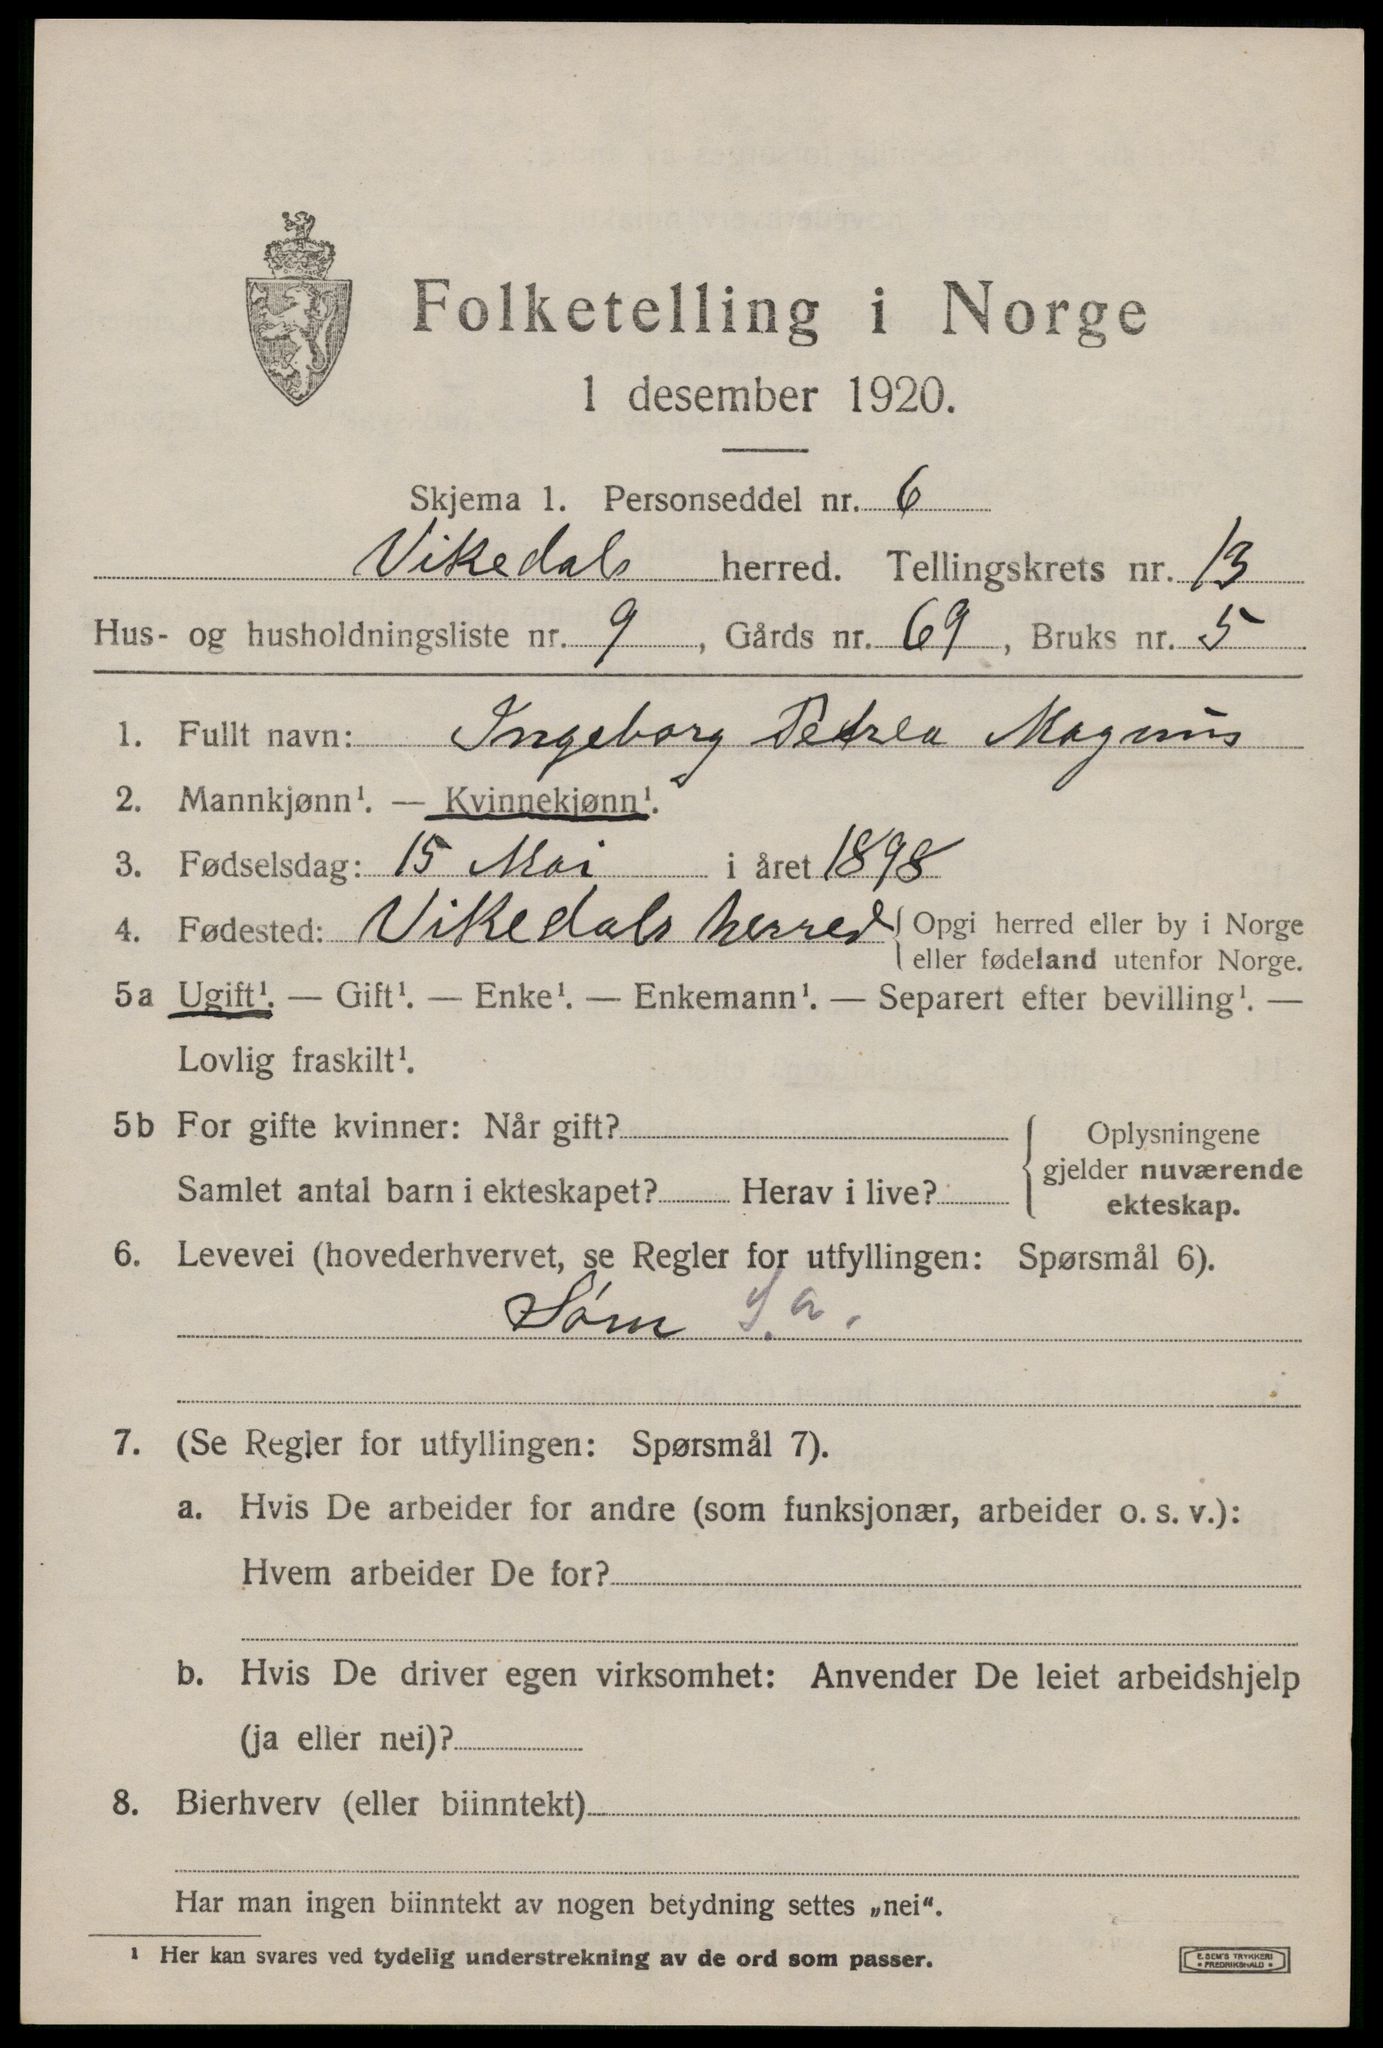 Folketelling i Norge
1 desember 1920.
Skjema 1. Personseddel nr. 6
Vikedals herred. Tellingskrets nr. 13
Hus- og husholdningsliste nr. 9, Gårds nr. 69, Bruks nr. 5
1. Fullt navn: Ingeborg Petrea Magnus
2. Mannkjønn¹. — Kvinnekjønn¹.
3. Fødselsdag: 15 Mai i året 1898
4. Fødested: Vikedals herred { Opgi herred eller by i Norge
eller fødeland utenfor Norge.
5a Ugift¹. — Gift¹. — Enke¹. — Enkemann¹. — Separert efter bevilling¹. —
Lovlig fraskilt¹.
5b For gifte kvinner: Når gift?
Samlet antal barn i ekteskapet? Herav i live?
{ Oplysningene
gjelder nuværende
ekteskap.
6. Levevei (hovederhvervet, se Regler for utfyllingen: Spørsmål 6).
Søm
7. (Se Regler for utfyllingen: Spørsmål 7).
a. Hvis De arbeider for andre (som funksjonær, arbeider o. s. v.):
Hvem arbeider De for?
b. Hvis De driver egen virksomhet: Anvender De leiet arbeidshjelp
(ja eller nei)?
8. Bierhverv (eller biinntekt)
Har man ingen biinntekt av nogen betydning settes „nei“.
¹ Her kan svares ved tydelig understrekning av de ord som passer.
E. SEM'S TRYKKERI
* FREDRIKSHALD *